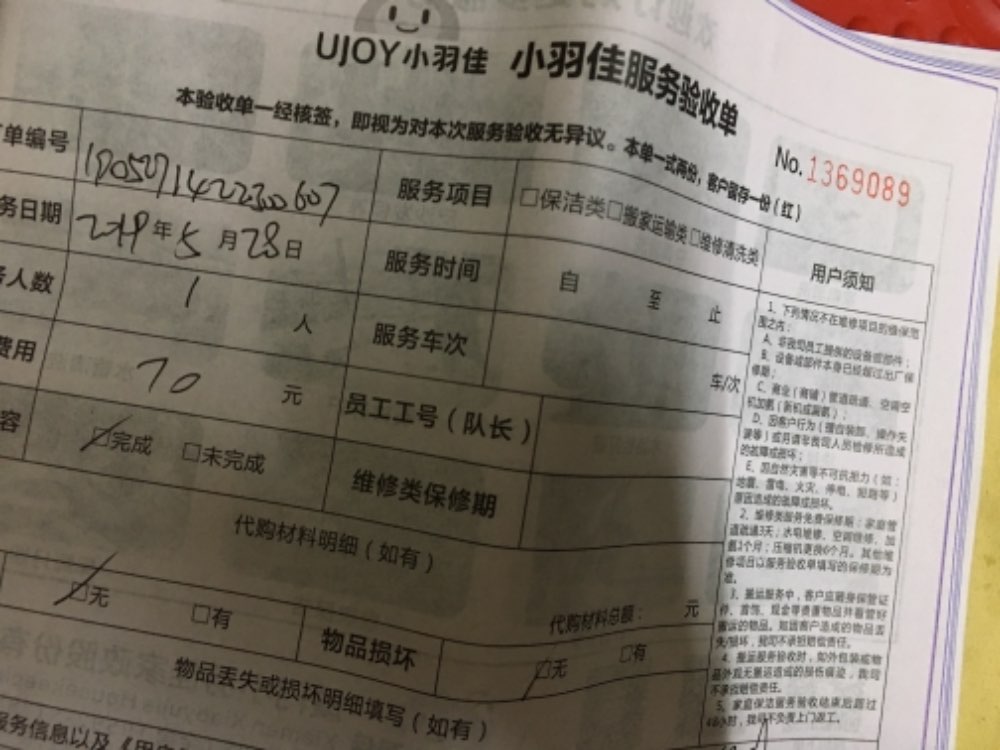 UJOY小羽佳 小羽佳服务验收单
本验收单一经核签，即视为对本次服务验收无异议。本单一式两份，客户留存一份（红）
No.1369089
单编号
服务项目 □保洁类□搬家运输类□维修清洗类 用户须知
务日期 年5月28日 服务时间 自 至 止
人数 1 人 服务车次 车/次
费用 70 元 员工工号（队长）
容 □完成 □未完成 维修类保修期
代购材料明细（如有）
代购材料总额： 元
□无 □有 物品损坏 □无 □有
物品丢失或损坏明细填写（如有）
服务信息以及《用户
1、下列情况不在维修项目的维保范
围之内：
A、非我司员工提供的设备或部件；
B、设备或部件本身已经超过出厂保
修期；
C、商业（商铺）管道疏通、空调空
机加氨（新机或漏氨）；
D、因客户行为（擅自装卸、操作失
误等）或月请非我司人员检修所造成
的故障或损坏；
E、因自然灾害等不可抗拒力（如：
地震、雷电、火灾、停电、短路等）
原因造成的故障或损坏。
2、维修类服务免费保修期：家庭管
道疏通3天；水电维修、空调维修、加
氨1个月；压缩机更换6个月。其他维
修项目以服务验收单填写的保修期为
准。
3、搬运服务中，客户应随身保管证
件、首饰、现金等贵重物品并看管好
搬运的物品。如因客户造成的物品丢
失/损坏，我司不承担赔偿责任。
4、搬运服务验收时，如外包装或物
品外观无搬运造成的损伤痕迹，我司
不承担赔偿责任。
5、家庭保洁服务验收结束后超过
48小时，我司不负责上门返工。